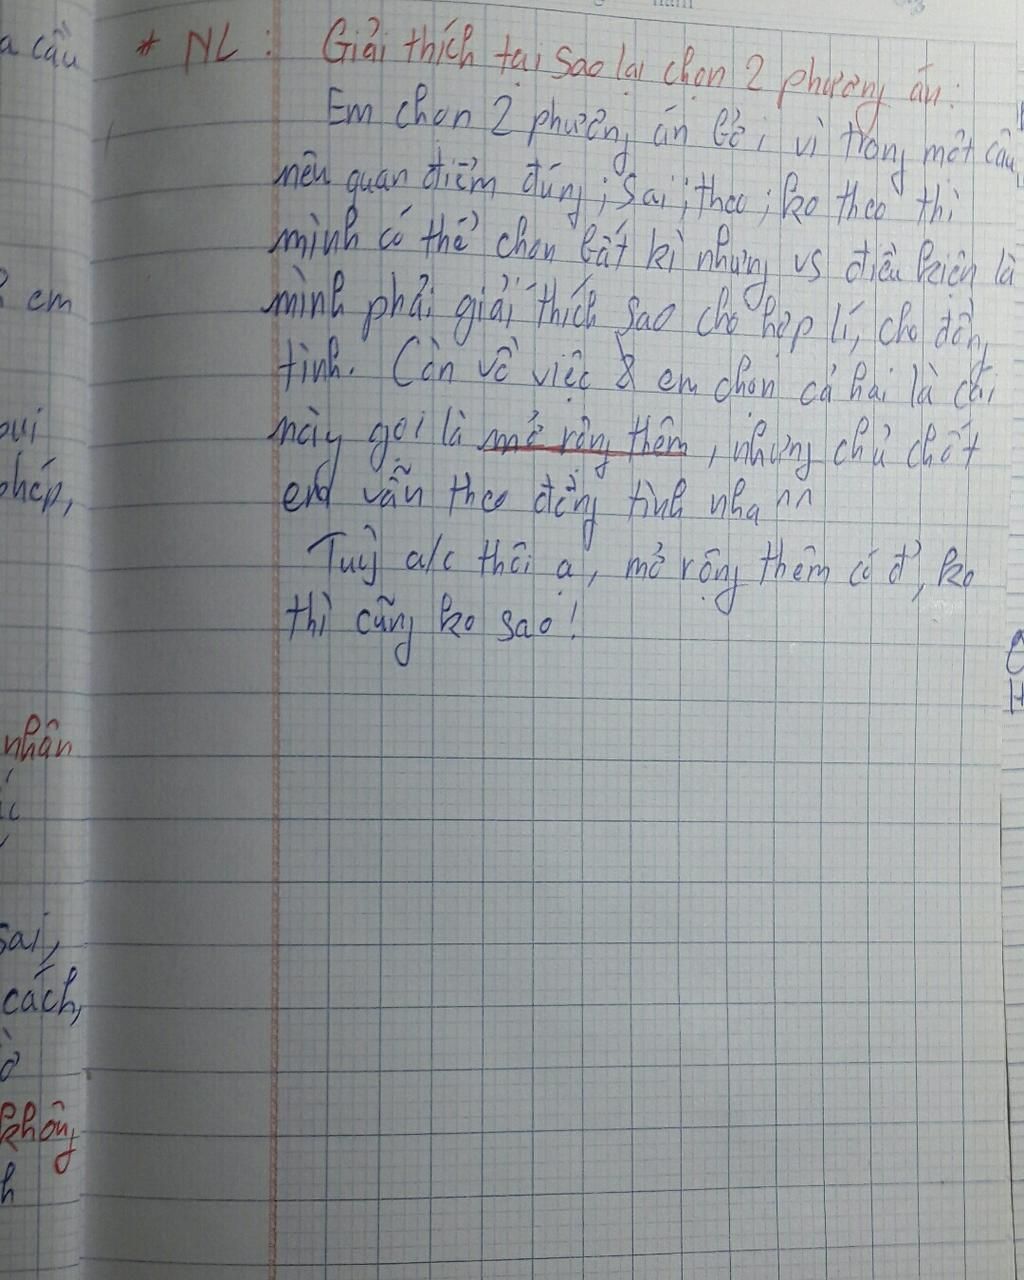 năm
a cầu
* NL : Giải thích tại sao lại chọn 2 phương án:
Em chọn 2 phương án bởi vì trong một câu
nêu quan điểm đúng; sai; theo; ko theo thì
mình có thể chọn bất kì nhưng vs điều kiện là
em
mình phải giải thích sao cho hợp lí, cho đồng
tình. Còn về việc em chọn cả hai là cái
này gọi là mở rộng thêm, nhưng chủ chốt
phép,
em vẫn theo đồng tình nha ^^
Tuỳ a/c thôi ạ, mở rộng thêm có đ, ko
thì cũng ko sao!
nhân
sai,
cách,
không
h